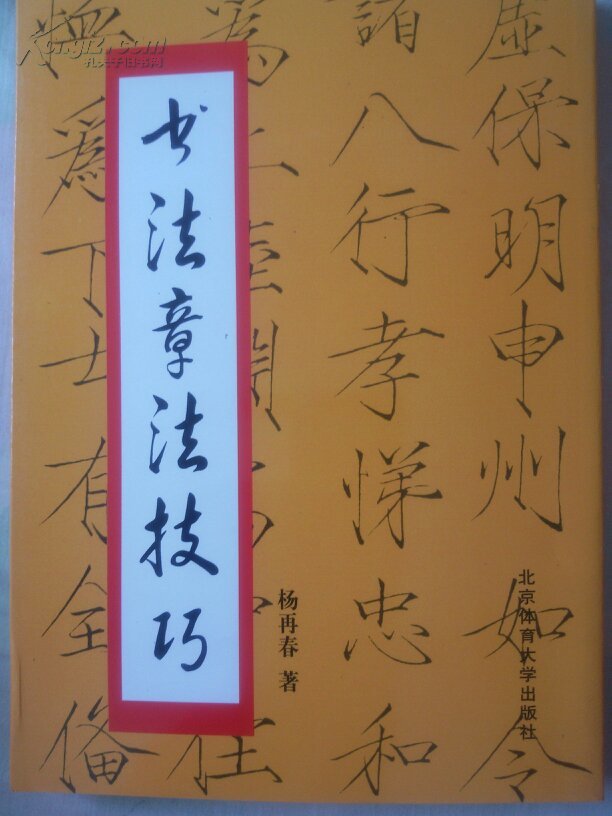 书法章法技巧
杨再春 著
北京体育大学出版社
虛保明申州如令
諸八行孝悌忠和
爲上
任
爲下士有全備
Kongfz.com
孔夫子旧书网